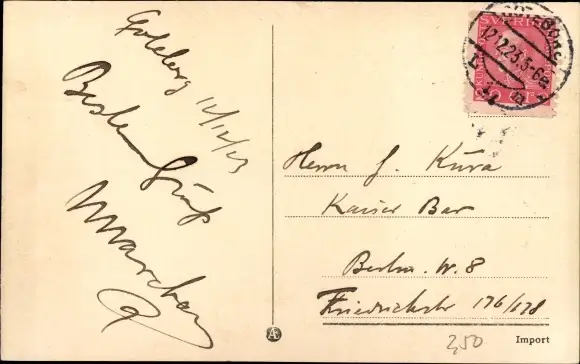 Goteborg 12/12/23
Besten Gruß
SVERIGE
GÖTEBORG
12.12.23.5-6
Herrn J. Kura
Kaiser Bar
Berlin. W. 8
Friedrichstr 176/178
350
Import